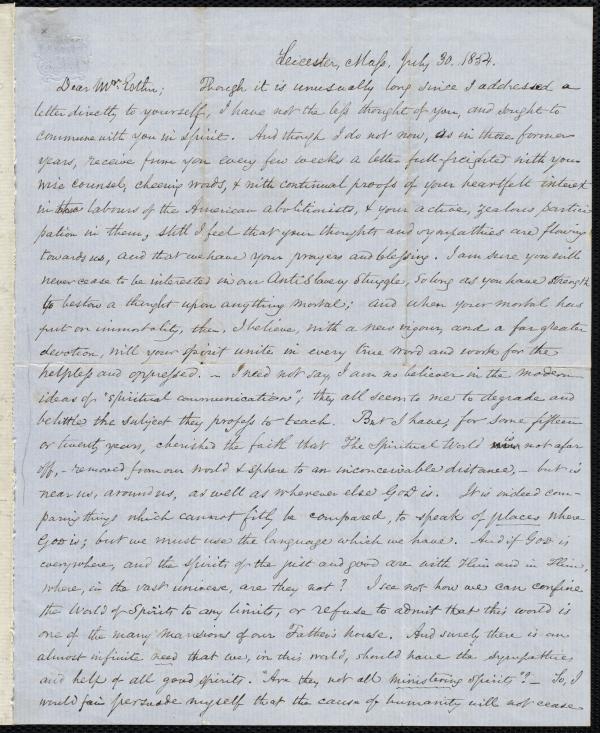 Leicester, Mass. July 30. 1854.
Dear Mr. Estlin; Though it is unusually long since I addressed a
letter directly to yourself, I have not the less thought of you, and sought to
commune with you in Spirit. And though I do not now, as in those former
years, receive from you every few weeks a letter full-freighted with your
wise counsel, cheering words, & with continual proofs of your heartfelt interest
in the labours of the American abolitionists, & your active, zealous, partici
pation in them, still I feel that your thoughts and sympathies are flowing
towards us, and that we have your prayers and blessing. I am sure you will
never cease to be interested in our Anti Slavery Struggle, so long as you have strength
to bestow a thought upon anything mortal; and when your mortal has
put on immortality, then, I believe, with a new vigour, and a far greater
devotion, will your spirit unite in every true word and work for the
helpless and oppressed. – I need not say I am no believer in the modern
ideas of "spiritual communication"; they all seem to me to degrade and
belittle the subject they profess to teach. But I have, for some fifteen
or twenty years, cherished the faith that The Spiritual World not afar
off, – removed from our world & sphere to an inconceivable distance, – but is
near us, around us, as well as wherever else God is. It is indeed com-
paring things which cannot fitly be compared, to speak of places where
God is; but we must use the language which we have. And if God is
everywhere, and the spirits of the just and good are with Him and in Him,
where, in the vast universe, are they not? I see not how we can confine
the World of Spirits to any limits, or refuse to admit that this world is
one of the many mansions of our Father's house. And surely there is an
almost infinite need that we, in this world, should have the sympathies
and help of all good spirits. "Are they not all ministering spirits"? – So, I
would fain persuade myself that the cause of humanity will not cease